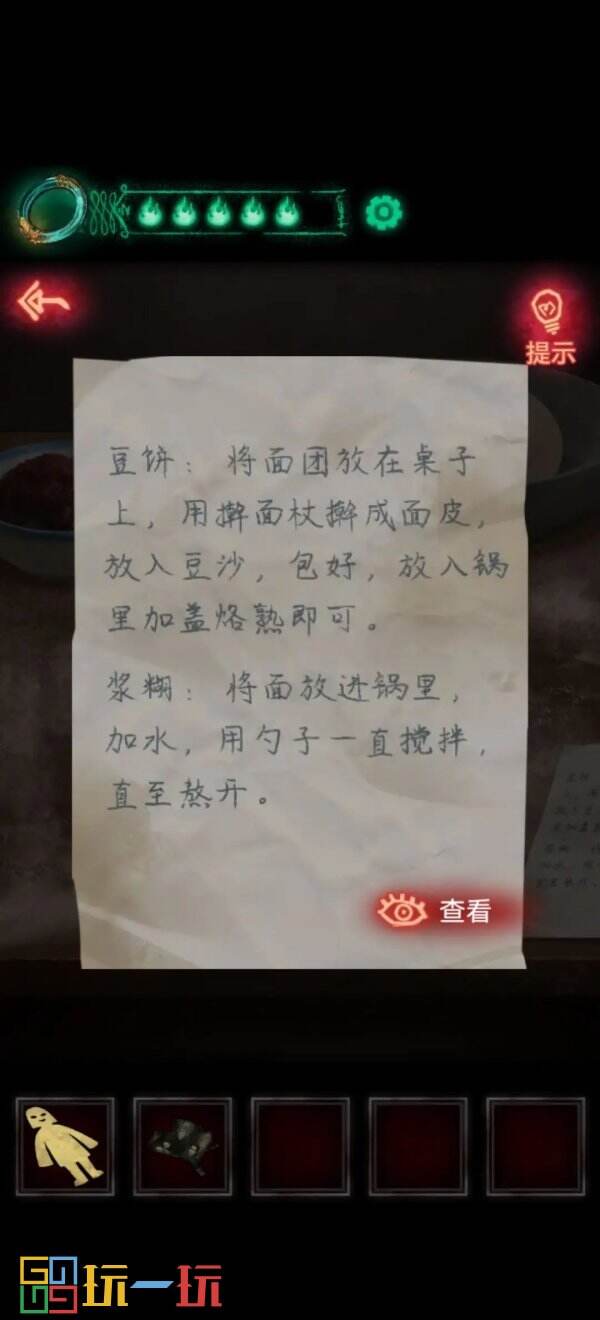 提示
豆饼：将面团放在桌子
上，用擀面杖擀成面皮，
放入豆沙，包好，放入锅
里加盖烙熟即可。
浆糊：将面放进锅里，
加水，用勺子一直搅拌，
直至熬开。
查看
玩一玩